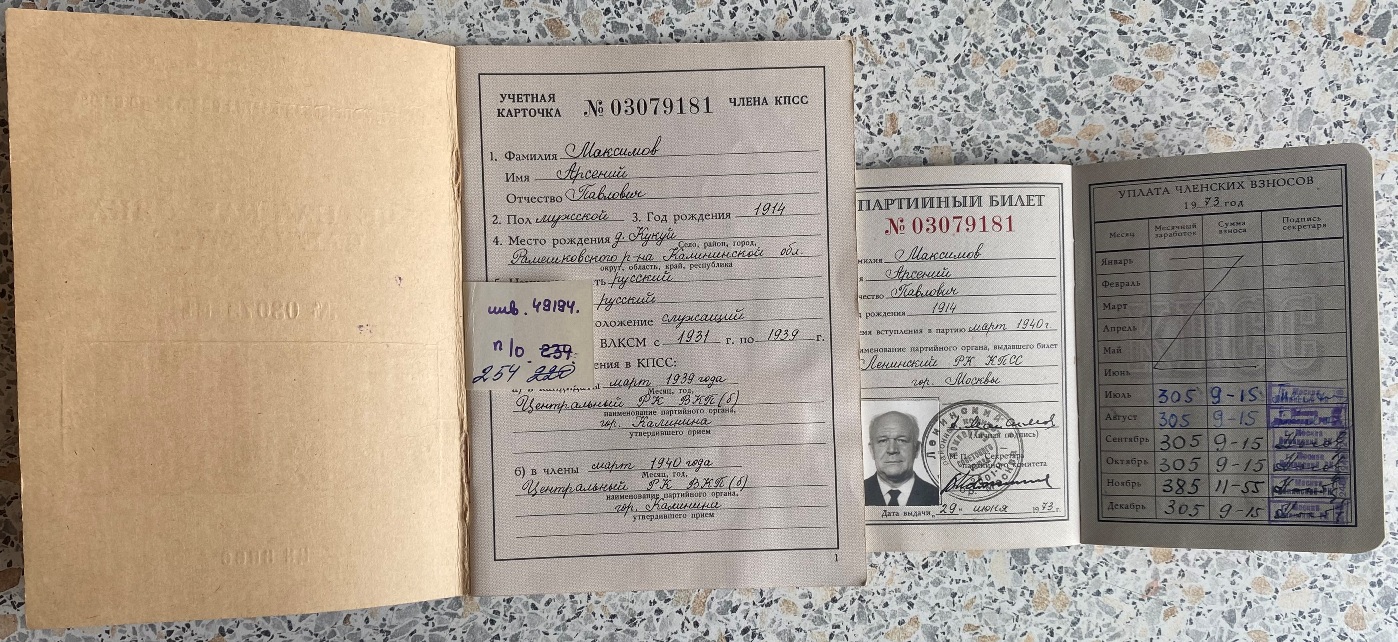 УЧЕТНАЯ КАРТОЧКА № 03079181 ЧЛЕНА КПСС
1. Фамилия Максимов
Имя Арсений
Отчество Павлович
2. Пол мужской 3. Год рождения 1914
4. Место рождения д. Кукуй
Село, район, город,
Рамешковского р-на Калининской обл.
округ, область, край, республика
русский
русский
служащий
ВЛКСМ с 1931 г. по 1939 г.
в КПСС:
март 1939 года
Месяц, год,
Центральный РК ВКП(б)
наименование партийного органа,
гор. Калинина
утвердившего прием
б) в члены март 1940 года
Месяц, год,
Центральный РК ВКП(б)
наименование партийного органа,
гор. Калинина
утвердившего прием
1
инв. 49194.
п/о 239
254 220
ПАРТИЙНЫЙ БИЛЕТ
№ 03079181
Максимов
Арсений
Павлович
рождения 1914
вступления в партию март 1940 г
партийного органа, выдавшего билет
Ленинский РК КПСС
гор. Москвы
(Личная подпись)
Секретарь
партийного комитета
Дата выдачи „29" июня 1973 г.
УПЛАТА ЧЛЕНСКИХ ВЗНОСОВ
1973 год
Месяц Месячный заработок Сумма взноса Подпись секретаря
Январь
Февраль
Март
Апрель
Май
Июнь
Июль 305 9-15
Август 305 9-15
Сентябрь 305 9-15
Октябрь 305 9-15
Ноябрь 385 11-55
Декабрь 305 9-15